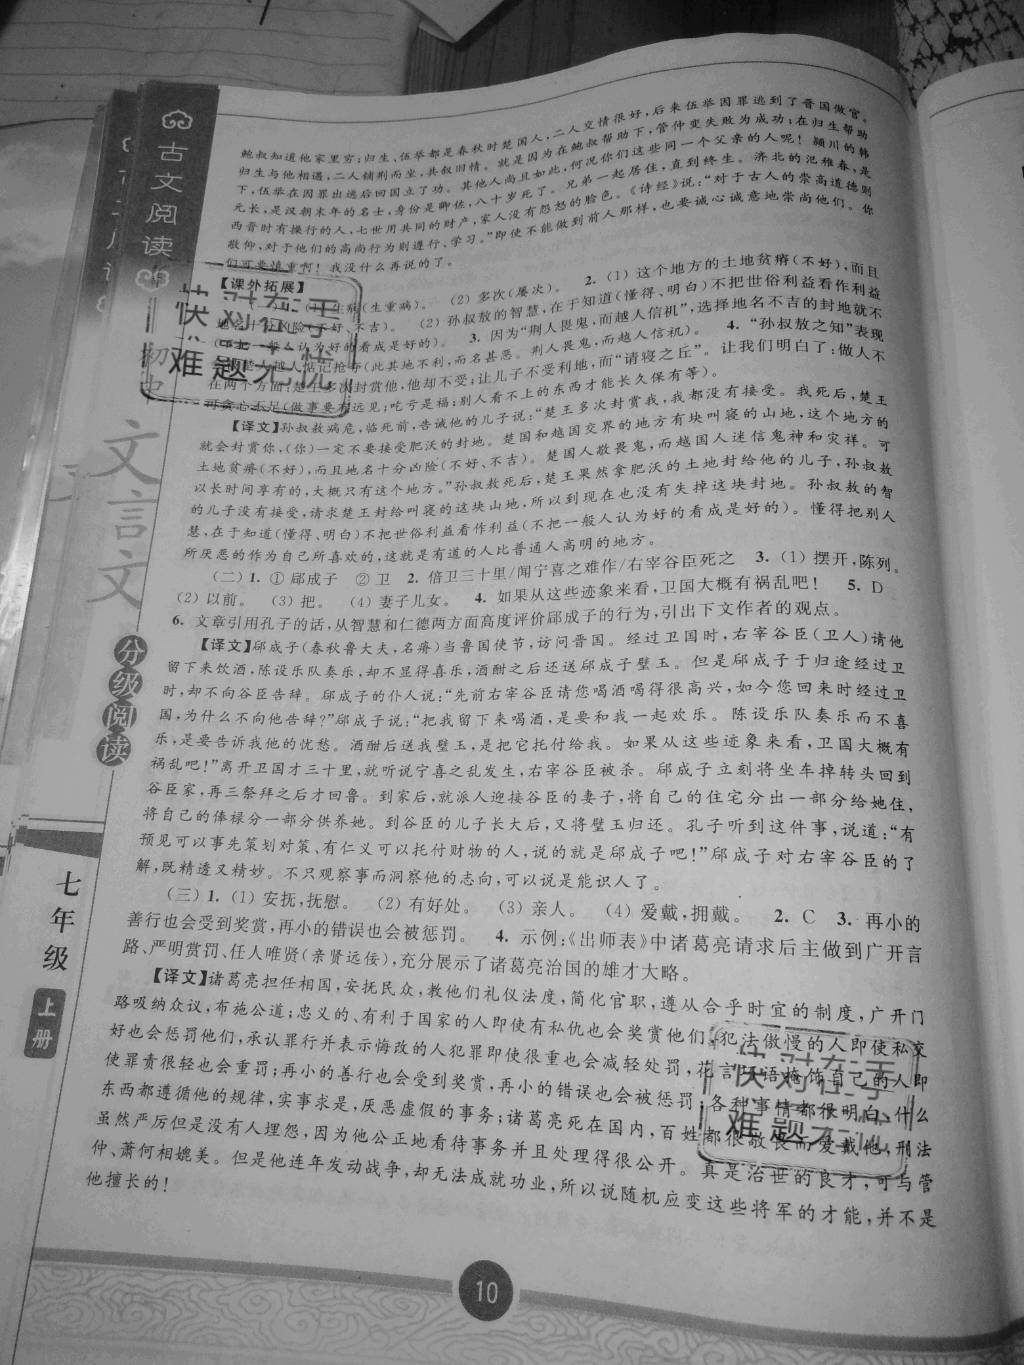 古文阅读
初中
文言文
分级阅读
七年级
上册
鲍叔知道他家里穷；归生、伍举都是春秋时楚国人，二人交情很好，后来伍举因罪逃到了晋国做官。
归生与他相遇，二人铺荆而坐，共叙旧情。就是因为在鲍叔帮助下，管仲变失败为成功；在归生帮助
下，伍举在因罪出逃后回国立了功。其他人尚且如此，何况你们这些同一个父亲的人呢！颍川的韩
元长，是汉朝末年的名士，身份是卿佐，八十岁死了。兄弟一起居住，直到终生。济北的氾稚春，是
西晋时有操行的人，七世用共同的财产，家人没有怨怒的脸色。《诗经》说：“对于古人的崇高道德则
敬仰，对于他们的高尚行为则遵行、学习。”即使不能做到前人那样，也要诚心诚意地崇尚他们。你
们可要慎重啊！我没什么再说的了。
【课外拓展】
生病（生重病）。 (2) 多次（屡次）。 2. (1) 这个地方的土地贫瘠（不好），而且
（不好、不吉）。 (2) 孙叔敖的智慧，在于知道（懂得、明白）不把世俗利益看作利益
一般人认为好的看成是好的）。 3. 因为“荆人畏鬼，而越人信机”，选择地名不吉的封地就不
越人惦记抢夺（此其地不利，而名甚恶。荆人畏鬼，而越人信机）。 4. “孙叔敖之知”表现
在两个方面：楚王多次封赏他，他却不受；让儿子不受利地，而“请寝之丘”。让我们明白了：做人不
可贪心不足（做事要有远见；吃亏是福；别人看不上的东西才能长久保有等）。
【译文】孙叔敖病危，临死前，告诫他的儿子说：“楚王多次封赏我，我都没有接受。我死后，楚王
就会封赏你，（你）一定不要接受肥沃的封地。楚国和越国交界的地方有块叫寝的山地，这个地方的
土地贫瘠（不好），而且地名十分凶险（不好、不吉）。楚国人敬畏鬼，而越国人迷信鬼神和灾祥。可
以长时间享有的，大概只有这个地方。”孙叔敖死后，楚王果然拿肥沃的土地封给他的儿子，孙叔敖
的儿子没有接受，请求楚王封给叫寝的这块山地，所以到现在也没有失掉这块封地。孙叔敖的智
慧，在于知道（懂得、明白）不把世俗利益看作利益（不把一般人认为好的看成是好的）。懂得把别人
所厌恶的作为自己所喜欢的，这就是有道的人比普通人高明的地方。
（二）1. ① 郈成子 ② 卫 2. 倍卫三十里/闻宁喜之难作/右宰谷臣死之 3. (1) 摆开，陈列。
(2) 以前。 (3) 把。 (4) 妻子儿女。 4. 如果从这些迹象来看，卫国大概有祸乱吧！ 5. D
6. 文章引用孔子的话，从智慧和仁德两方面高度评价郈成子的行为，引出下文作者的观点。
【译文】郈成子（春秋鲁大夫，名瘠）当鲁国使节，访问晋国。经过卫国时，右宰谷臣（卫人）请他
留下来饮酒，陈设乐队奏乐，却不显得喜乐，酒酣之后还送郈成子璧玉。但是郈成子于归途经过卫
时，却不向谷臣告辞。郈成子的仆人说：“先前右宰谷臣请您喝酒喝得很高兴，如今您回来时经过卫
国，为什么不向他告辞？”郈成子说：“把我留下来喝酒，是要和我一起欢乐。陈设乐队奏乐而不喜
乐，是要告诉我他的忧愁。酒酣后送我璧玉，是把它托付给我。如果从这些迹象来看，卫国大概有
祸乱吧！”离开卫国才三十里，就听说宁喜之乱发生，右宰谷臣被杀。郈成子立刻将坐车掉转头回到
谷臣家，再三祭拜之后才回鲁。到家后，就派人迎接谷臣的妻子，将自己的住宅分出一部分给她住，
将自己的俸禄分一部分供养她。到谷臣的儿子长大后，又将璧玉归还。孔子听到这件事，说道：“有
预见可以事先策划对策、有仁义可以托付财物的人，说的就是郈成子吧！”郈成子对右宰谷臣的了
解，既精透又精妙。不只观察事而洞察他的志向，可以说是能识人了。
（三）1. (1) 安抚，抚慰。 (2) 有好处。 (3) 亲人。 (4) 爱戴，拥戴。 2. C 3. 再小的
善行也会受到奖赏，再小的错误也会被惩罚。 4. 示例：《出师表》中诸葛亮请求后主做到广开言
路、严明赏罚、任人唯贤（亲贤远佞），充分展示了诸葛亮治国的雄才大略。
【译文】诸葛亮担任相国，安抚民众，教他们礼仪法度，简化官职，遵从合乎时宜的制度，广开门
路吸纳众议，布施公道；忠义的、有利于国家的人即使有私仇也会奖赏他们，犯法傲慢的人即使私交
好也会惩罚他们，承认罪行并表示悔改的人犯罪即使很重也会减轻处罚，花言巧语掩饰自己的人即
使罪责很轻也会重罚；再小的善行也会受到奖赏，再小的错误也会被惩罚；各种事情都很明白，什么
东西都遵循他的规律，实事求是，厌恶虚假的事务；诸葛亮死在国内，百姓都很敬畏而爱戴他，刑法
虽然严厉但是没有人埋怨，因为他公正地看待事务并且处理得很公开。真是治世的良才，可与管
仲、萧何相媲美。但是他连年发动战争，却无法成就功业，所以说随机应变这些将军的才能，并不是
他擅长的！
快对在手
难题无忧
快对在手
难题无忧
10